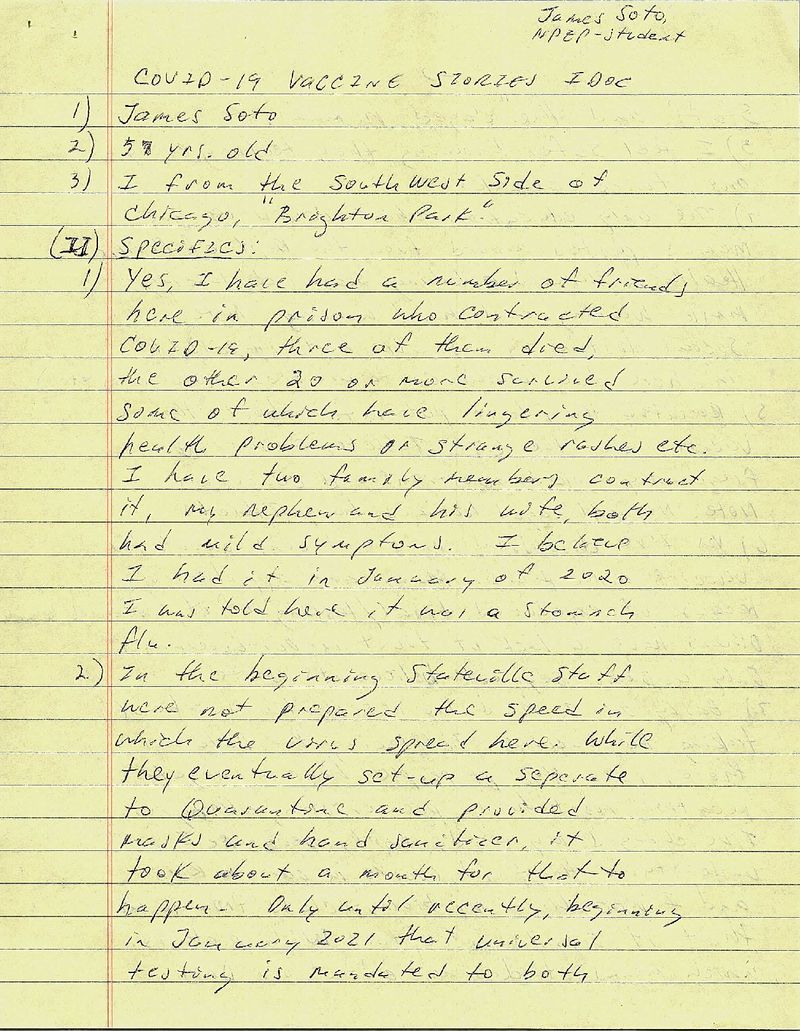 James Soto,
NPEP-Student
COVID-19 VACCINE STORIES IDOC
1) James Soto
2) yrs. old
3) I from the Southwest Side of
Chicago, "Brighton Park".
(II) Specifics:
1) Yes, I have had a number of friends
here in prison who contracted
COVID-19, three of them died,
the other 20 or more survived
some of which have lingering
health problems or strange rashes etc.
I have two family members contract
it, my nephew and his wife, both
had mild symptoms. I believe
I had it in January of 2020
I was told here it was a stomach
flu.
2) In the beginning Stateville staff
were not prepared the speed in
which the virus spread here. While
they eventually set-up a seperate
to Quarantine and provided
masks and hand sanitizer, it
took about a month for that to
happen. Only until recently, beginning
in January 2021 that universal
testing is mandated to both